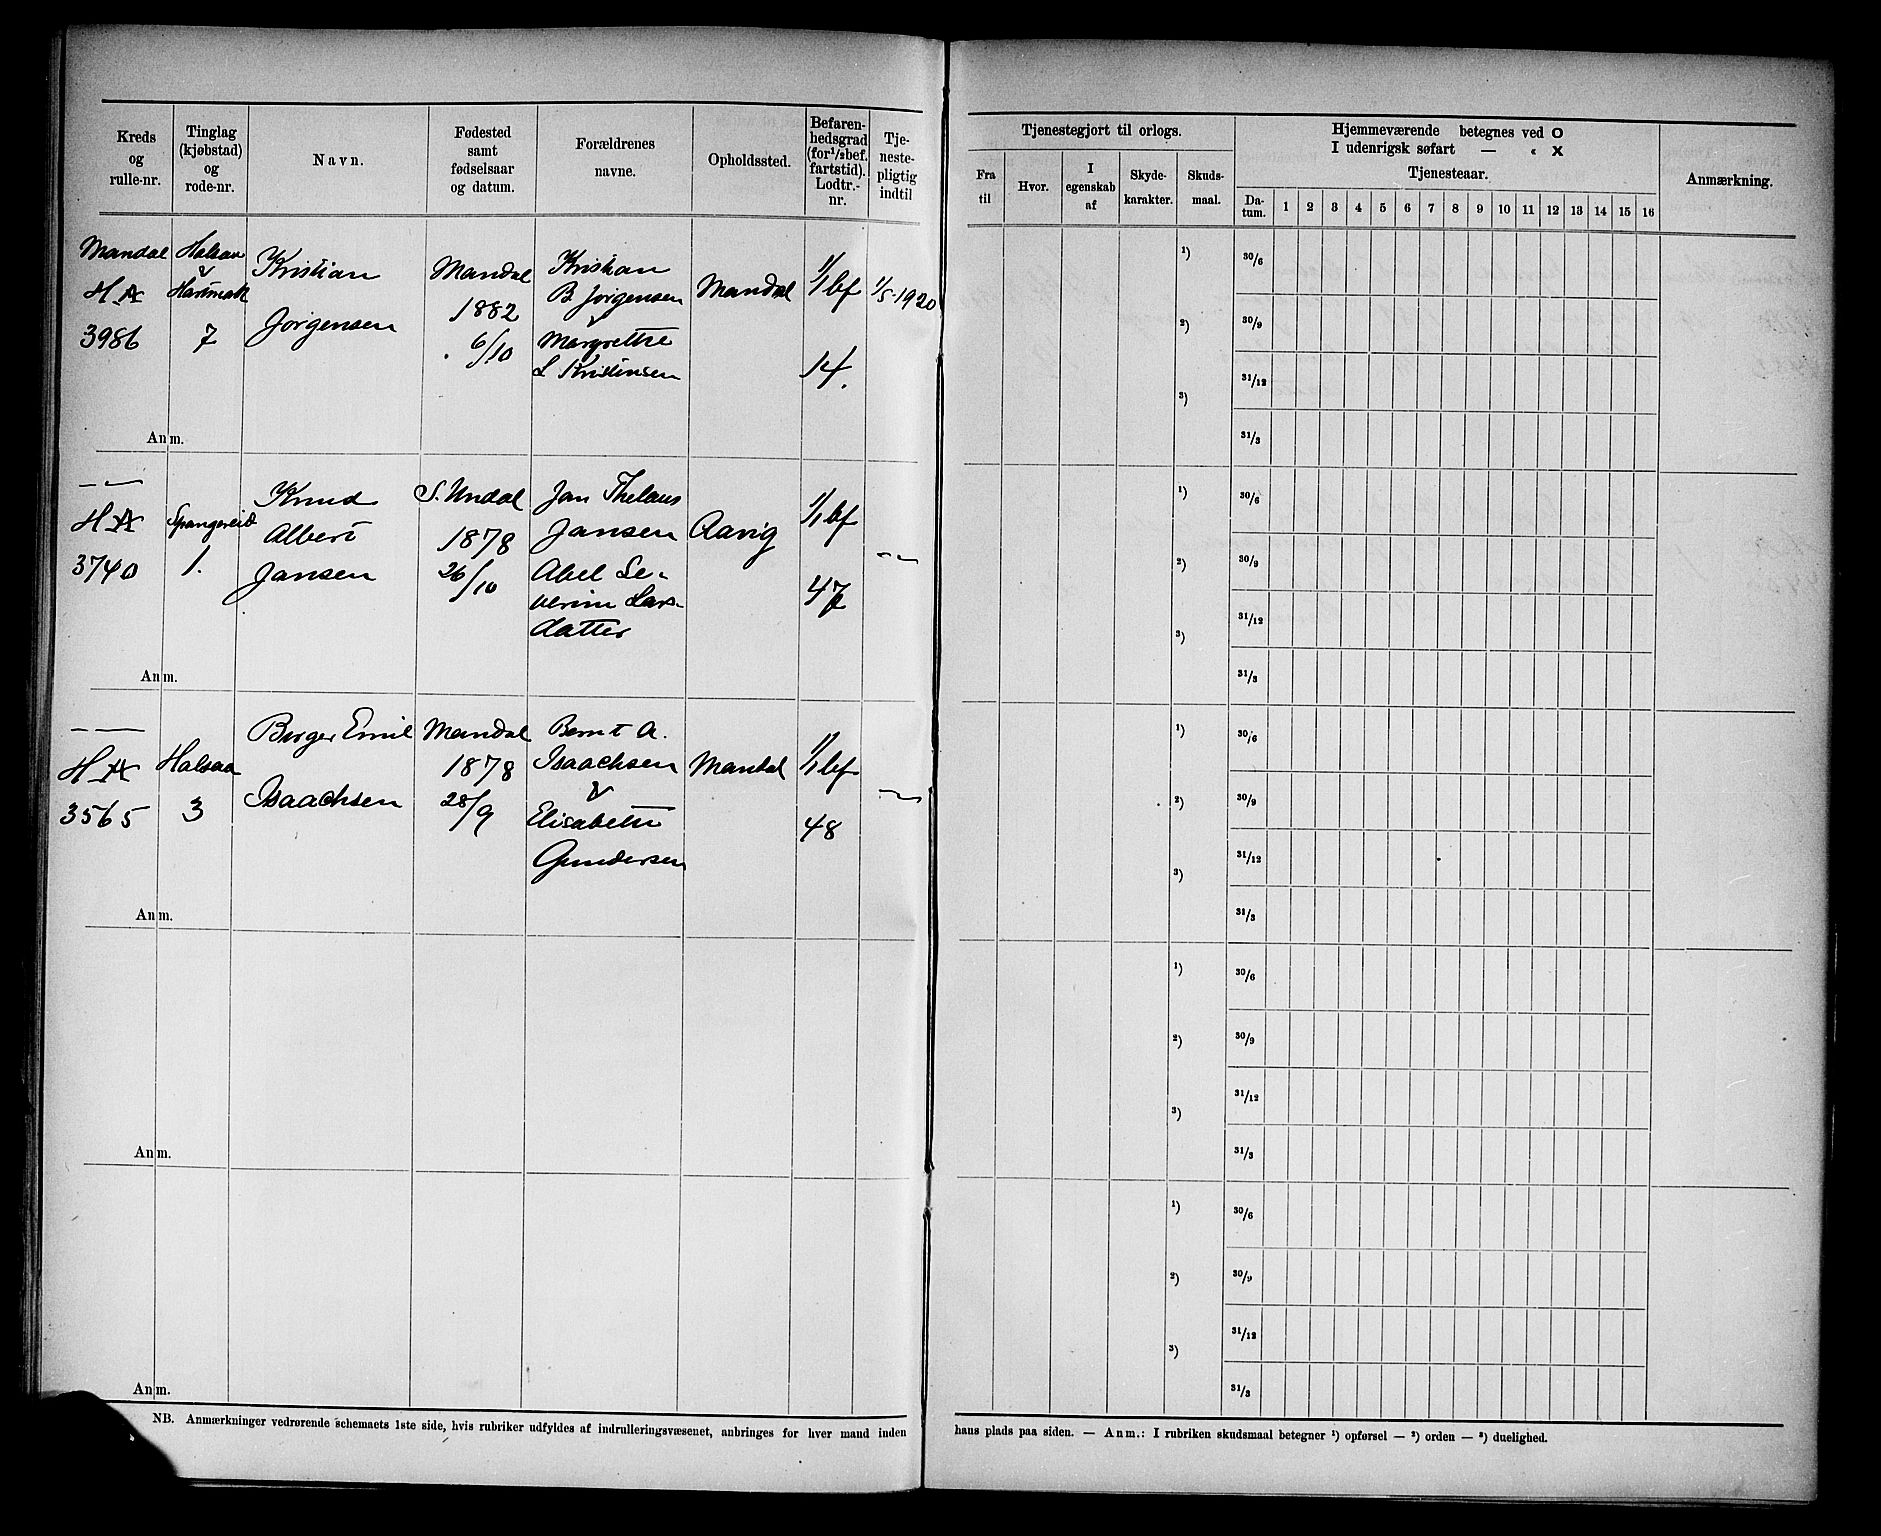 Kreds og rulle-nr.
Tinglag (kjøbstad) og rode-nr.
Navn.
Fødested samt fødselsaar og datum.
Forældrenes navne.
Opholdssted.
Befaren-hedsgrad (for 1/2 bef. fartstid). Lodtr.-nr.
Tje-neste-pligtig indtil
Tjenestegjort til orlogs.
Fra til
Hvor.
I egenskab af
Skyde-karakter.
Skuds-maal.
Hjemmeværende betegnes ved O
I udenrigsk søfart — « X
Tjenesteaar.
Da-tum. 1 2 3 4 5 6 7 8 9 10 11 12 13 14 15 16
Anmærkning.
Mandal
H A
3986
Halsaa
&
Hartmark
7
Kristian
Jørgensen
Mandal
1882
6/10
Kristian
B. Jørgensen
&
Margrethe
L Kristensen
Mandal
1/1 bf
14.
1/5-1920
1)
2)
3)
30/6
30/9
31/12
31/3
Anm.
— " —
H A
3740
Spangereid
1.
Knud
Albert
Jansen
S. Undal
1878
26/10
Jan
Jansen
Abel Se-
verine Lars-
datter
Aavig
1/1 bf
47
— " —
1)
2)
3)
30/6
30/9
31/12
31/3
Anm.
— " —
H A
3565
Halsaa
3
Birger Emil
Isaachsen
Mandal
1878
28/9
Bernt A.
Isaachsen
&
Elisabeth
Gundersen
Mandal
1/1 bf
48
— " —
1)
2)
3)
30/6
30/9
31/12
31/3
Anm.
1)
2)
3)
30/6
30/9
31/12
31/3
Anm.
1)
2)
3)
30/6
30/9
31/12
31/3
Anm.
NB. Anmærkninger vedrørende schemaets 1ste side, hvis rubriker udfyldes af indrulleringsvæsenet, anbringes for hver mand inden
hans plads paa siden. — Anm.: I rubriken skudsmaal betegner 1) opførsel — 2) orden — 3) duelighed.